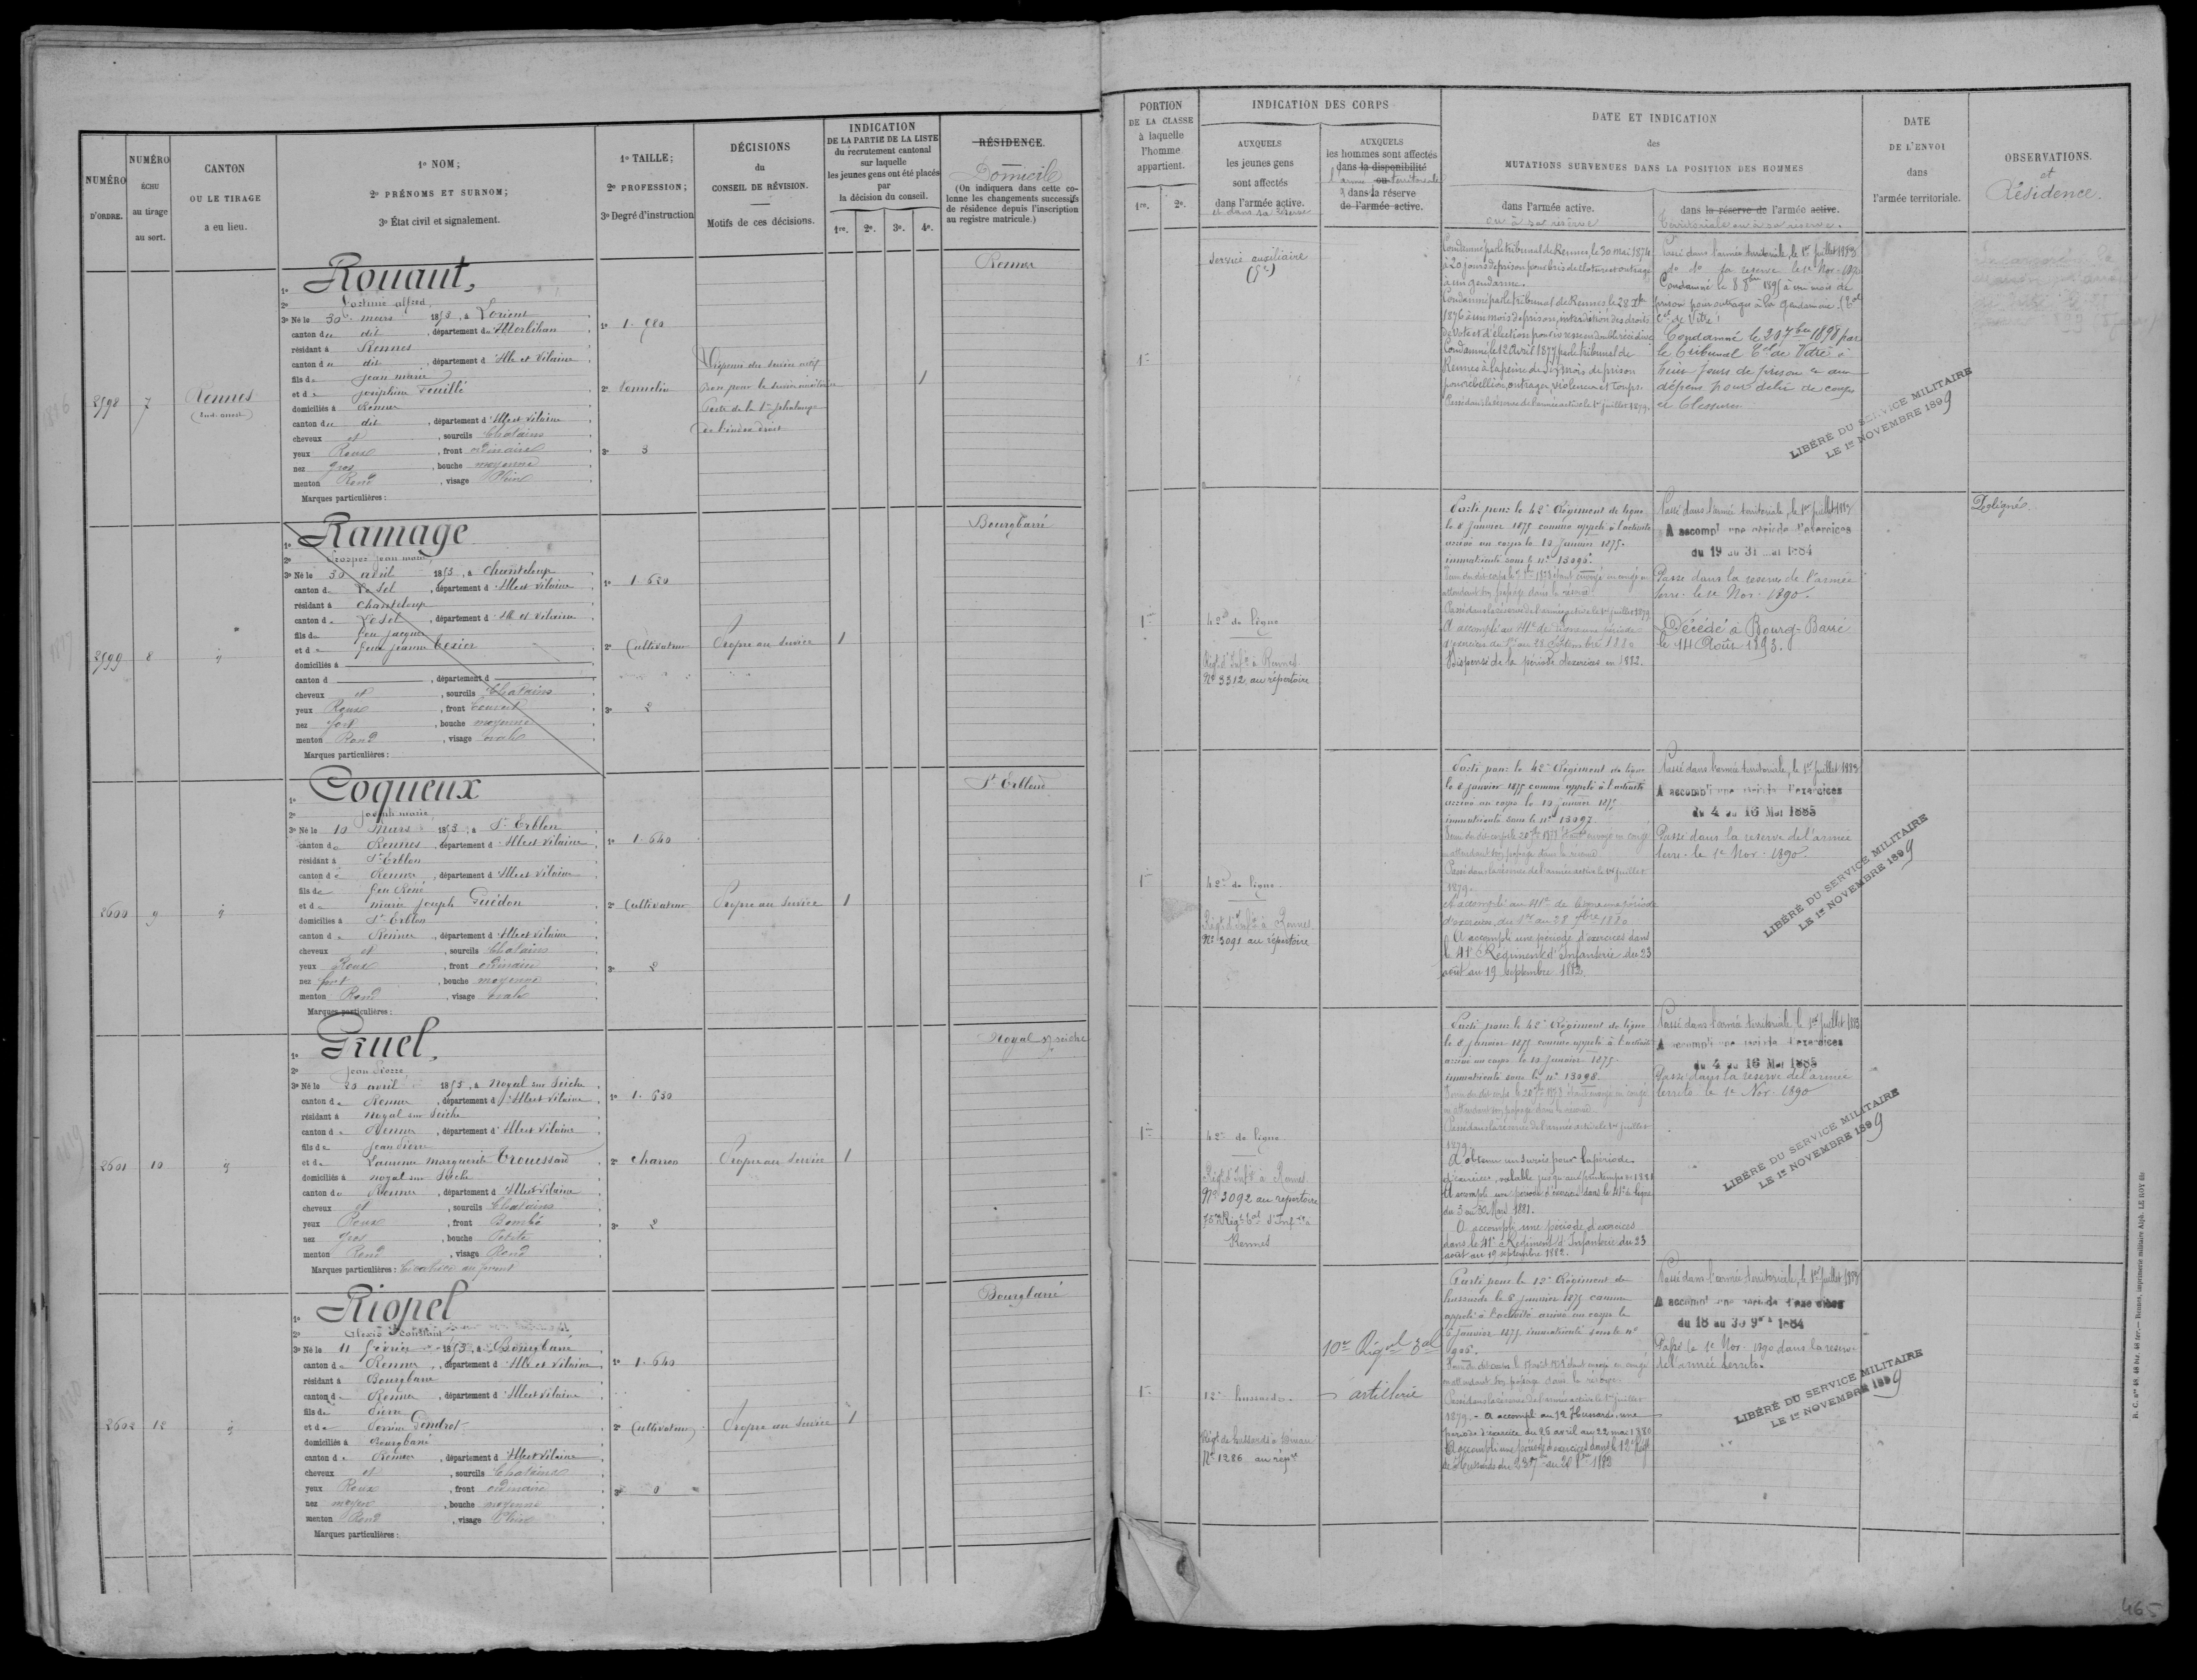 NUMÉRO
D'ORDRE.
NUMÉRO
ÉCHU
au tirage
au sort.
CANTON
OU LE TIRAGE
a eu lieu.
1º NOM;
2º PRÉNOMS ET SURNOM;
3º État civil et signalement.
1º TAILLE;
2º PROFESSION;
3º Degré d'instruction
DÉCISIONS
du
CONSEIL DE RÉVISION.
Motifs de ces décisions.
INDICATION
DE LA PARTIE DE LA LISTE
du recrutement cantonal
sur laquelle
les jeunes gens ont été placés
par
la décision du conseil.
1re. 2e. 3e. 4e.
RÉSIDENCE.
Domicile
(On indiquera dans cette co-
lonne les changements successifs
de résidence depuis l'inscription
au registre matricule.)
2598
7
Rennes
1º Rouaut,
2º Fortuné alfred,
3º Né le 30 mars 1853, à Lorient
canton du dit, département du Morbihan
résidant à Rennes
canton du dit, département d'Ille et Vilaine
fils de Jean marie
et de Joséphine Fouillé
domiciliés à Rennes
canton du dit, département d'Ille et Vilaine
cheveux et, sourcils Chatains
yeux Roux, front ordinaire
nez gros, bouche moyenne
menton Rond, visage Plein
Marques particulières :
1º 1.780
2º Tonnelier
3º 3
Bon pour le service auxiliaire
Perte de la 1re phalange
de l'index droit
1
Rennes
2599
8
id
1º Ramage
2º Prosper Jean marie
3º Né le 30 avril 1853, à Chanteloup
canton de Le Sel, département d'Ille et Vilaine
résidant à Chanteloup
canton de Le Sel, département d'Ille et Vilaine
fils de feu Jacques
et de feue Jeanne Texier
domiciliés à
canton d, département d
cheveux et, sourcils Chatains
yeux Roux, front Couvert
nez fort, bouche moyenne
menton Rond, visage ovale
Marques particulières :
1º 1.620
2º Cultivateur
3º 2
Propre au Service
1
Bourgbarré
2600
9
id
1º Coqueux
2º Joseph marie
3º Né le 10 Mars 1853, à St Erblon
canton de Rennes, département d'Ille et Vilaine
résidant à St Erblon
canton de Rennes, département d'Ille et Vilaine
fils de feu René
et de marie Joseph Guédon
domiciliés à St Erblon
canton de Rennes, département d'Ille et Vilaine
cheveux et, sourcils Chatains
yeux Roux, front ordinaire
nez fort, bouche moyenne
menton Rond, visage ovale
Marques particulières :
1º 1.640
2º Cultivateur
3º 2
Propre au Service
1
St Erblond
2601
10
id
1º Gruel,
2º Jean Pierre
3º Né le 25 avril 1853, à Noyal sur Seiche
canton de Rennes, département d'Ille et Vilaine
résidant à Noyal sur Seiche
canton de Rennes, département d'Ille et Vilaine
fils de Jean Pierre
et de Laurence Marguerite Trouessard
domiciliés à Noyal sur Seiche
canton de Rennes, département d'Ille et Vilaine
cheveux et, sourcils Chatains
yeux Roux, front Bombé
nez gros, bouche Petite
menton Rond, visage Rond
Marques particulières : Cicatrice au front
1º 1.630
2º Charron
3º 2
Propre au Service
1
Noyal s/ seiche
2602
12
id
1º Riopel
2º Alexis Constant
3º Né le 11 février 1853, à Bourgbarré
canton de Rennes, département d'Ille et Vilaine
résidant à Bourgbarré
canton de Rennes, département d'Ille et Vilaine
fils de Pierre
et de Perrine Gendrot
domiciliés à Bourgbarré
canton de Rennes, département d'Ille et Vilaine
cheveux et, sourcils Chatains
yeux Roux, front ordinaire
nez moyen, bouche moyenne
menton Rond, visage Plein
Marques particulières :
1º 1.640
2º Cultivateur
3º 0
Propre au Service
1
Bourgbarré
PORTION
DE LA CLASSE
à laquelle
l'homme
appartient.
1re. 2e.
INDICATION DES CORPS
AUXQUELS
les jeunes gens
sont affectés
dans l'armée active.
et dans sa réserve
AUXQUELS
les hommes sont affectés
dans la disponibilité
ou
dans la réserve
de l'armée active.
DATE ET INDICATION
des
MUTATIONS SURVENUES DANS LA POSITION DES HOMMES
dans l'armée active.
ou à sa réserve
dans la réserve de l'armée active.
territoriale ou à sa réserve.
DATE
DE L'ENVOI
dans
l'armée territoriale.
OBSERVATIONS.
et
Résidence.
1re
Service auxiliaire
Condamné par le tribunal de Rennes, le 30 mai 1874
à 20 jours de prison pour bris de cloture et outrage
à un gendarme.
Condamné par le tribunal de Rennes le 28
1876 à un mois de prison, interdiction des droits
de vote et d'élection pour ivresse en double récidive
Condamné le 12 Avril 1877 par le tribunal de
Rennes à la peine de six mois de prison
pour rébellion, outrages, violences et coups.
Passé dans la réserve de l'armée active le 1er juillet 1879.
Passé dans l'armée territoriale, le 1er juillet 1883
do do la reserve le 1er Nov. 1890
Condamné le 8 8bre 1895 à un mois de
prison pour outrages à la gendarmerie. (
de Vitré)
Condamné le 30 7bre 1898 par
le tribunal Cel de Vitré à
huit jours de prison et aux
dépens pour délit de coups
et blessures
LIBÉRÉ DU SERVICE MILITAIRE
LE 1er NOVEMBRE 1899
1re
42e de ligne
Régt d'Infie à Rennes
No 3312 au répertoire
Parti pour le 42e Régiment de ligne
le 8 Janvier 1875 comme appelé à l'activité
arrivé au corps le 10 Janvier 1875.
immatriculé sous le no 13096.
attendant son passage dans la réserve
Passé dans la réserve de l'armée active le 1er juillet 1879
A accompli au 41e de ligne une période
d'exercices du 1er au 28 Septembre 1880
Dispensé de la période d'exercices en 1882.
Passé dans l'armée territoriale, le 1er juillet 1883
A accompli une période d'exercices
du 19 au 31 mai 1884
Passé dans la reserve de l'armée
terre. le 1er Nov. 1890.
Décédé à Bourg-Barré
le 14 Août 1893.
Poligné.
1re
42e de ligne.
Régt d'Infie à Rennes
No 3091 au répertoire
Parti pour le 42e Régiment de ligne
le 8 janvier 1875 comme appelé à l'activité
arrivé au corps le 10 janvier 1875
immatriculé sous le no 13097.
en attendant son passage dans la réserve
Passé dans la réserve de l'armée active le 1er juillet
1879.
A accompli au 41e de ligne une période
d'exercices, du 1er au 28 7bre 1880
A accompli une période d'exercices dans
le 41e Régiment d'Infanterie du 23
août au 19 septembre 1882.
Passé dans l'armée territoriale, le 1er juillet 1883
A accompli une période d'exercices
du 4 au 16 Mai 1885
Passé dans la reserve de l'armée
terre. le 1er Nov. 1890.
LIBÉRÉ DU SERVICE MILITAIRE
LE 1er NOVEMBRE 1899
1re
42e de ligne
Régt d'Infie à Rennes
No 3092 au répertoire
Rennes
Parti pour le 42e Régiment de ligne
le 8 janvier 1875 comme appelé à l'activité
arrivé au corps le 10 Janvier 1875
immatriculé sous le no 13098.
en attendant son passage dans la réserve
Passé dans la réserve de l'armée active le 1er juillet
1879
A obtenu un sursis pour la période
d'exercices, valable jusqu'au printemps de 1881
A accompli une période d'exercices dans le 41e de ligne
du 3 au 30 Mars 1881.
A accompli une période d'exercices
dans le 41e Régiment d'Infanterie du 23
août au 19 septembre 1882.
Passé dans l'armée territoriale, le 1er juillet 1883
A accompli une période d'exercices
du 4 au 16 Mai 1885
Passé dans la reserve de l'armée
territo. le 1er Nov. 1890
LIBÉRÉ DU SERVICE MILITAIRE
LE 1er NOVEMBRE 1899
1re
12e hussards.
Régt de hussards à Dinan
No 1286 au répre
10e Régt
artillerie
Parti pour le 12e Régiment de
hussards le 8 janvier 1875 comme
appelé à l'activité arrivé au corps le
janvier 1875 immatriculé sous le no
en attendant son passage dans la réserve
Passé dans la réserve de l'armée active le 1er juillet
1879. - A accompli au 12e Hussards, une
période d'exercice du 25 avril au 22 mai 1880
A accompli une période d'exercices dans le 12e Régt
Passé dans l'armée territoriale, le 1er juillet 1883
A accompli une période d'exercices
du 18 au 30 9bre 1884
Passé le 1er Nov. 1890 dans la reserve
de l'armée territo.
LIBÉRÉ DU SERVICE MILITAIRE
LE 1er NOVEMBRE 1899
465